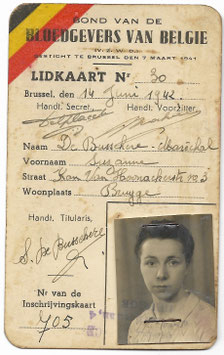 BOND VAN DE
BLOEDGEVERS VAN BELGIE
(V. Z. W. D.)
GESTICHT TE BRUSSEL DEN 7 MAART 1941
LIDKAART Nr 30
Brussel, den 14 Juni 1942.
Handt. Secret. Handt. Voorzitter
Naam De Busschere-Maréchal
Voornaam Suzanne
Straat Kan. Van Hoonackerstr no 3
Woonplaats Brugge
Handt. Titularis,
S. De Busschere
Nr van de
Inschrijvingskaart
705